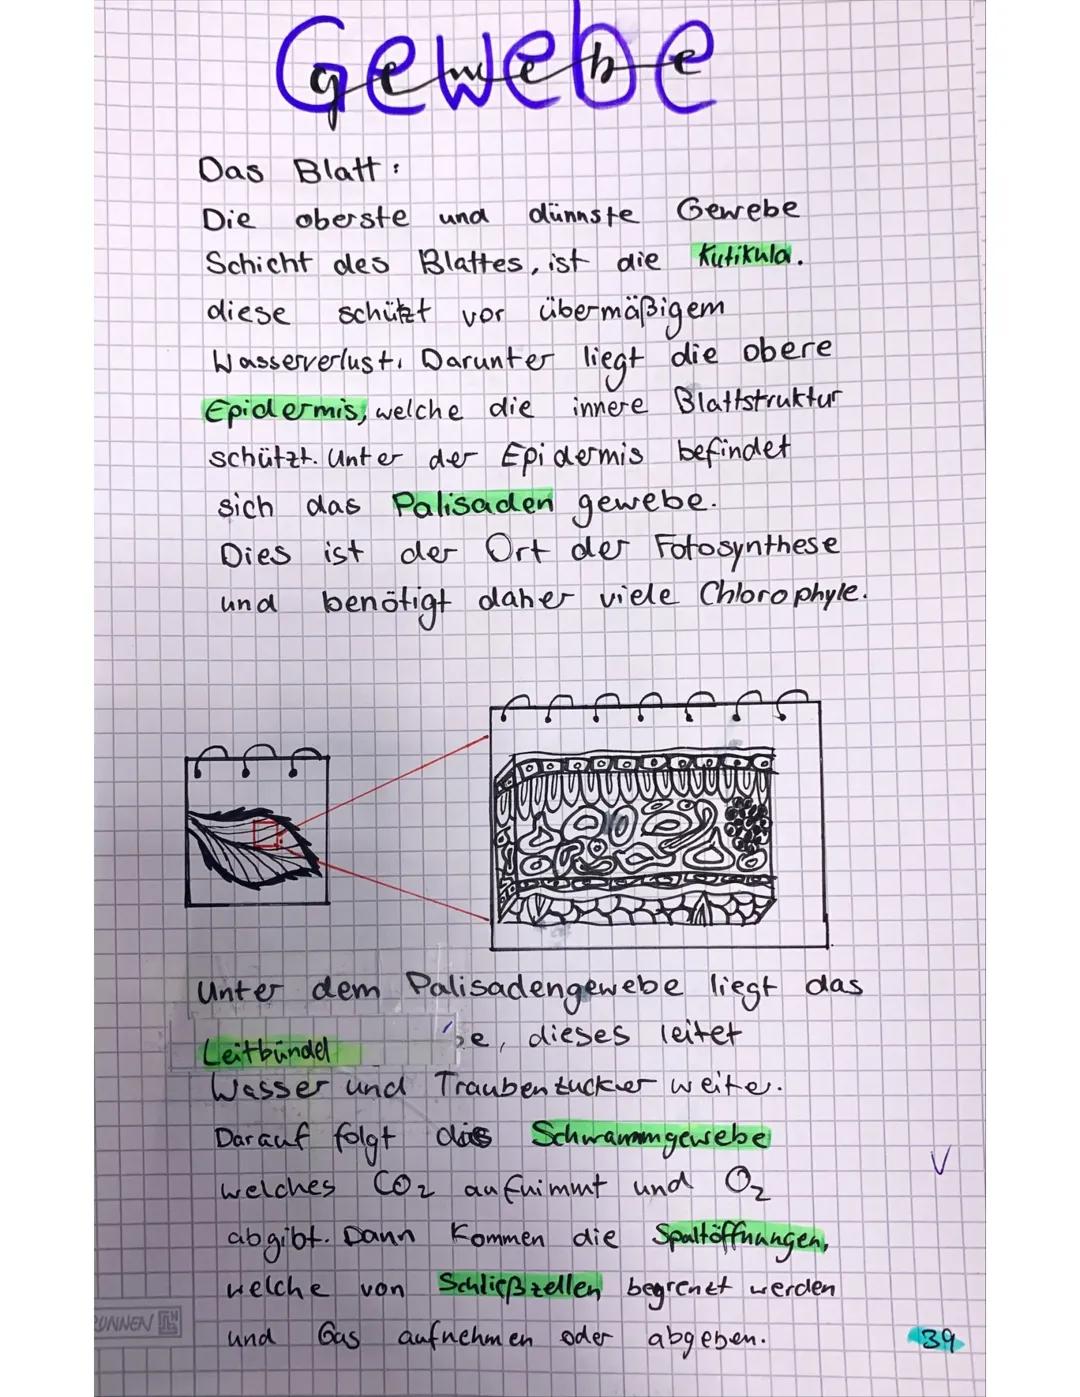 Gewebe
gewebe
Das Blatt:
Die oberste und dünnste Gewebe
Schicht des Blattes, ist die Kutikula.
diese schützt vor übermäßigem
Wasserverlust. Darunter liegt die obere
Epidermis, welche die innere Blattstruktur
schützt. Unter der Epidermis befindet
sich das Palisaden gewebe.
Dies ist der Ort der Fotosynthese
und benötigt daher viele Chlorophyle.
Unter dem Palisadengewebe liegt das
Leitbündel be, dieses leitet
Wasser und Traubenzucker weiter.
Darauf folgt das Schwammgewebe
welches CO2 aufnimmt und O2
abgibt. Dann kommen die Spaltöffnungen,
welche von Schließzellen begrenzt werden
und Gas aufnehmen oder abgeben.
39